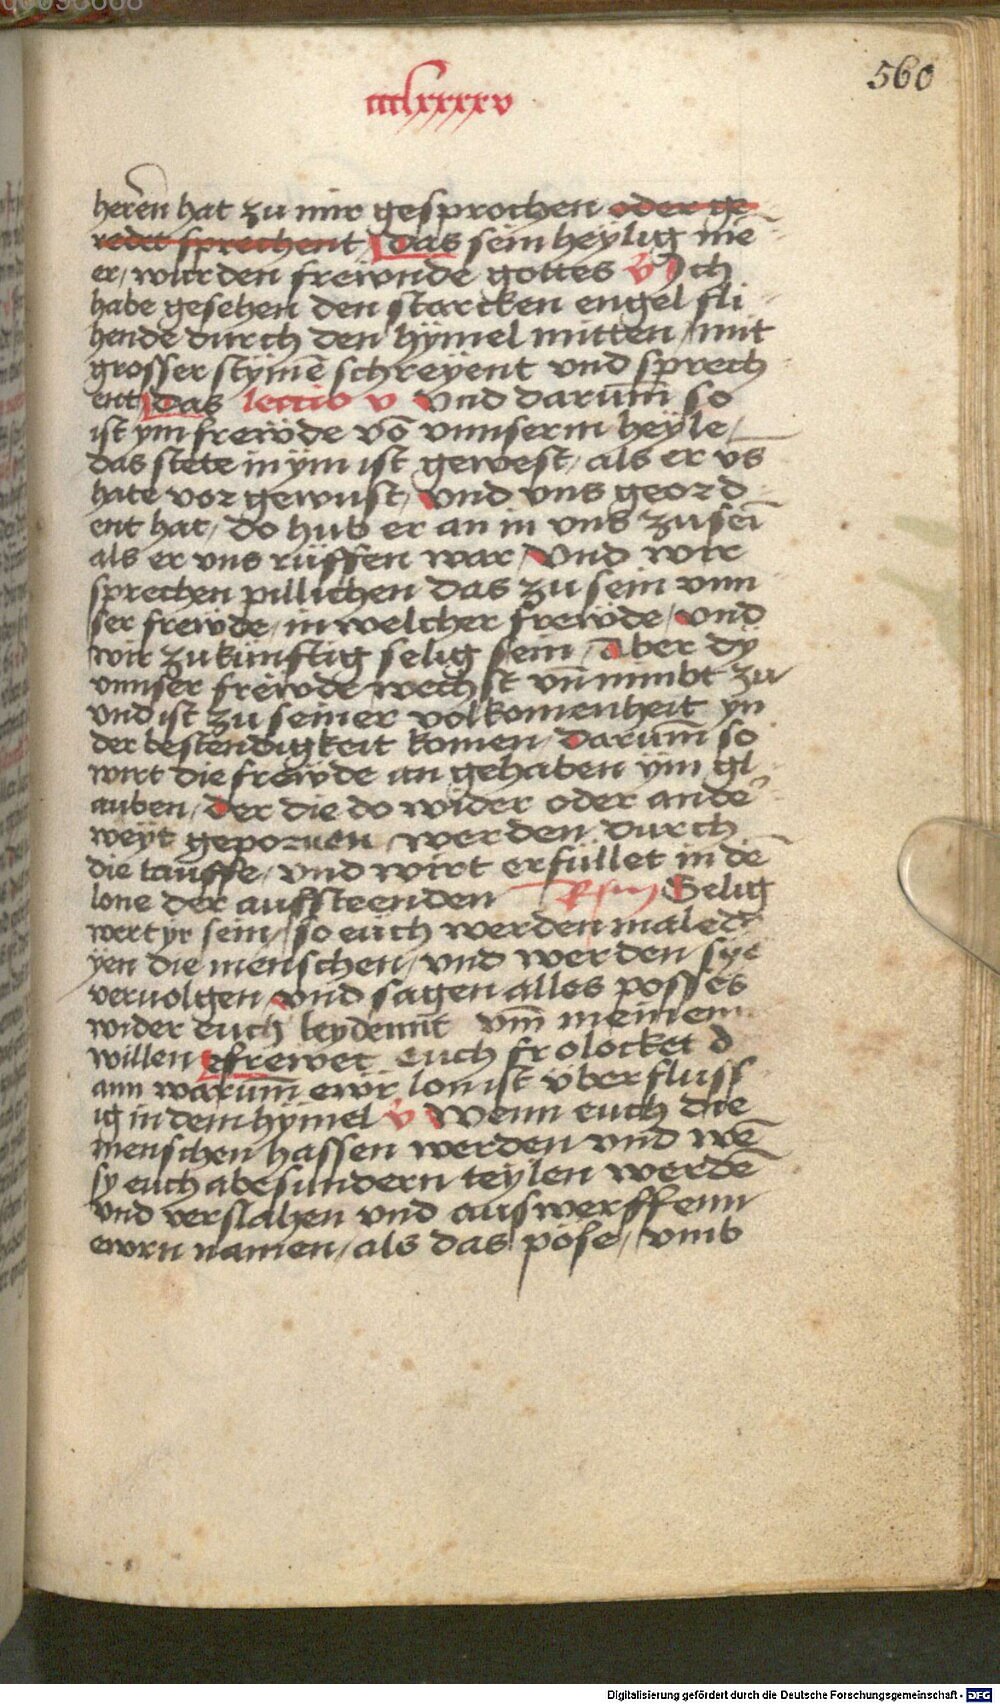 560
cccclxxxxv
heren hat zu mir gesprochen oder ge
redet sprechent Das sein heylig mē
er/ wurden frewnde gottes v Ich
habe gesehen den starcken engel fli
hende durch den hymel mitten/ mit
grosser stȳmē schreyent vnd sprech
ent/ Das lectio v Vnd darum̄ so
ist ym frewde vō vnnserm heyle/
das stete in ym ist gewest/ als er vs
hate vor gewust/ vnd vns geord
ent hat/ do hub er an in vns zu sei
als er vns rüffen war/ Vnd wir
sprechen pillichen das zu sein vnn
ser frewde/ in welcher frewde/ vnd
wir zukünftig selig sein/ Aber dy
vnnser frewde wechst vn̄ nimbt zu
vnd ist zu seiner volkomenheit yn
der bestendigkeit komen/ Darum̄ so
wirt die frewde an gehaben ym gl
auben/ Der die do wider oder ande
weyt geporuen werden durch
die tauffe/ vnd wirt erfüllet in dē
lone der aufsteenden Rsm Selig
wert yr sein/ so euch werden maledi
yen die menschen/ vnd werden sye
veruolgen/ vnd sagen alles posses
wider euch leydennt vm̄ meinem
willen Efrewet euch frolocket d
ann warum̄ ewr lon ist überflüss
ig in dem hymel v Wenn euch die
menschen hassen werden vnd wē
sy euch abesundern teylen werdē
vnd verslahen vnd auswerffenn
ewrn namen/ als das pöse/ vmb
Digitalisierung gefördert durch die Deutsche Forschungsgemeinschaft - DFG